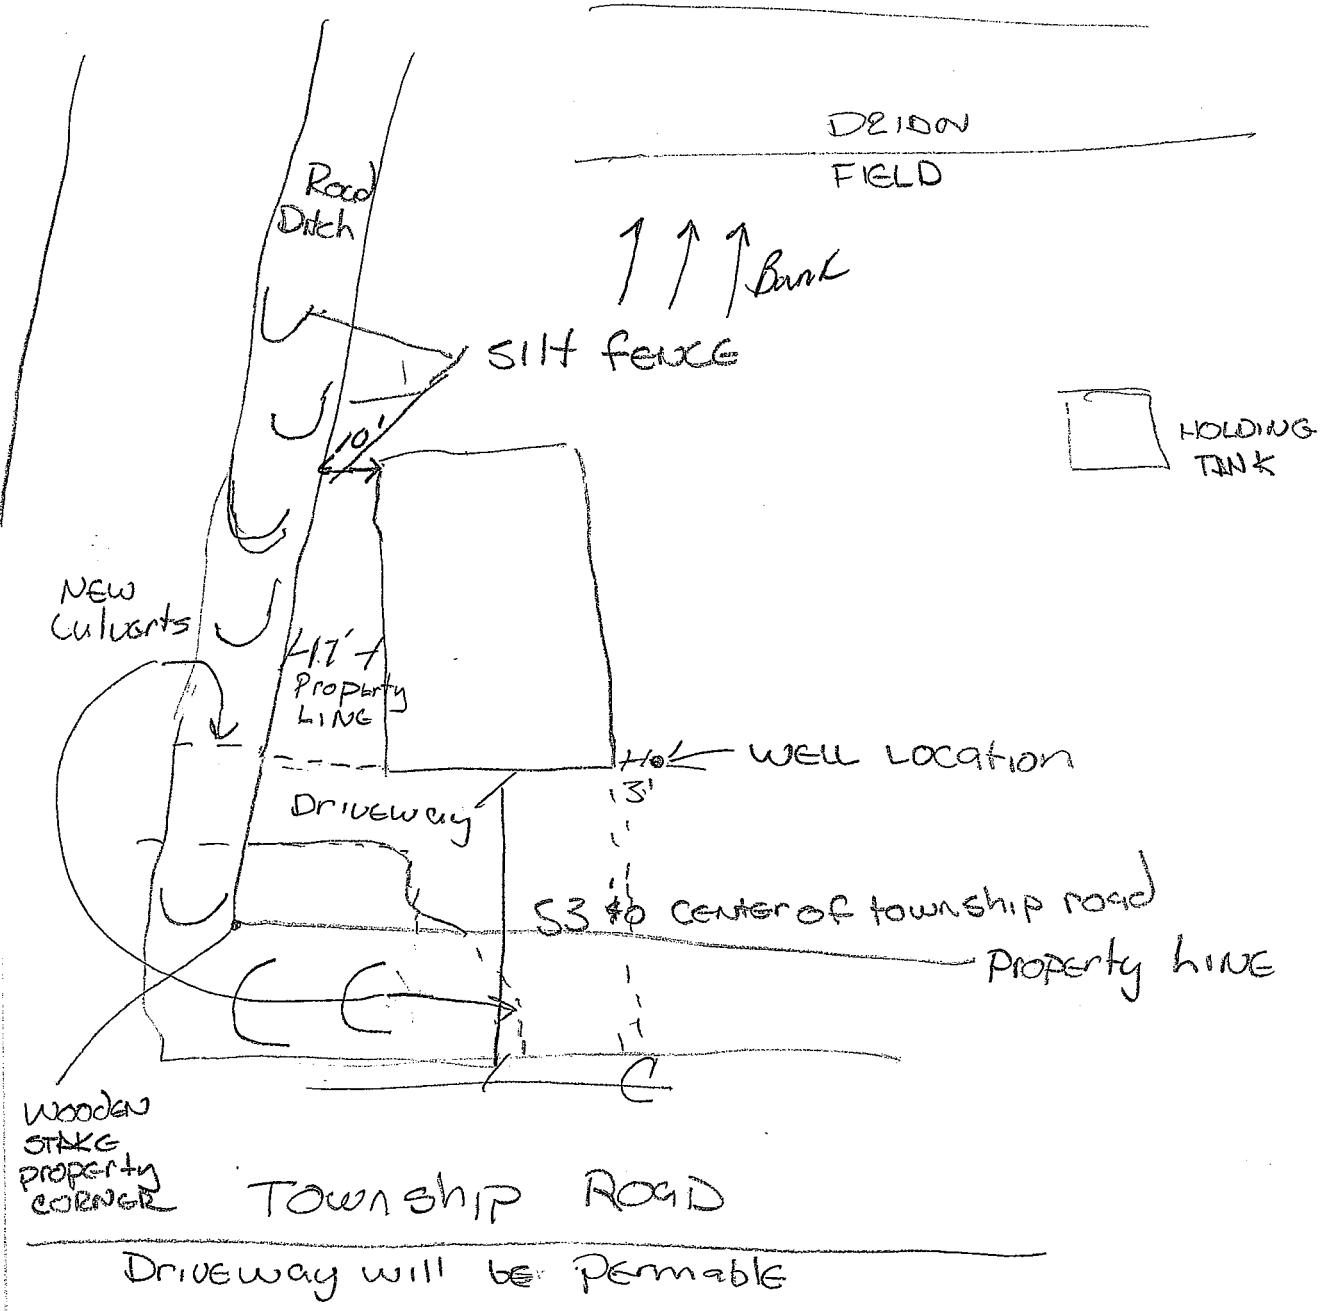 DRION
FIELD
Road
Ditch
Bank
SIlt fENCE
10'
HOLDING
TANK
NEW
Culverts
17'
Property
LINE
WELL LOCATION
3'
DRIVEWAY
53 to CENTER of township road
Property LINE
WOODEN
STAKE
property
CORNER
TOWNShip ROAD
DRIVEWAY will be PERMABLE